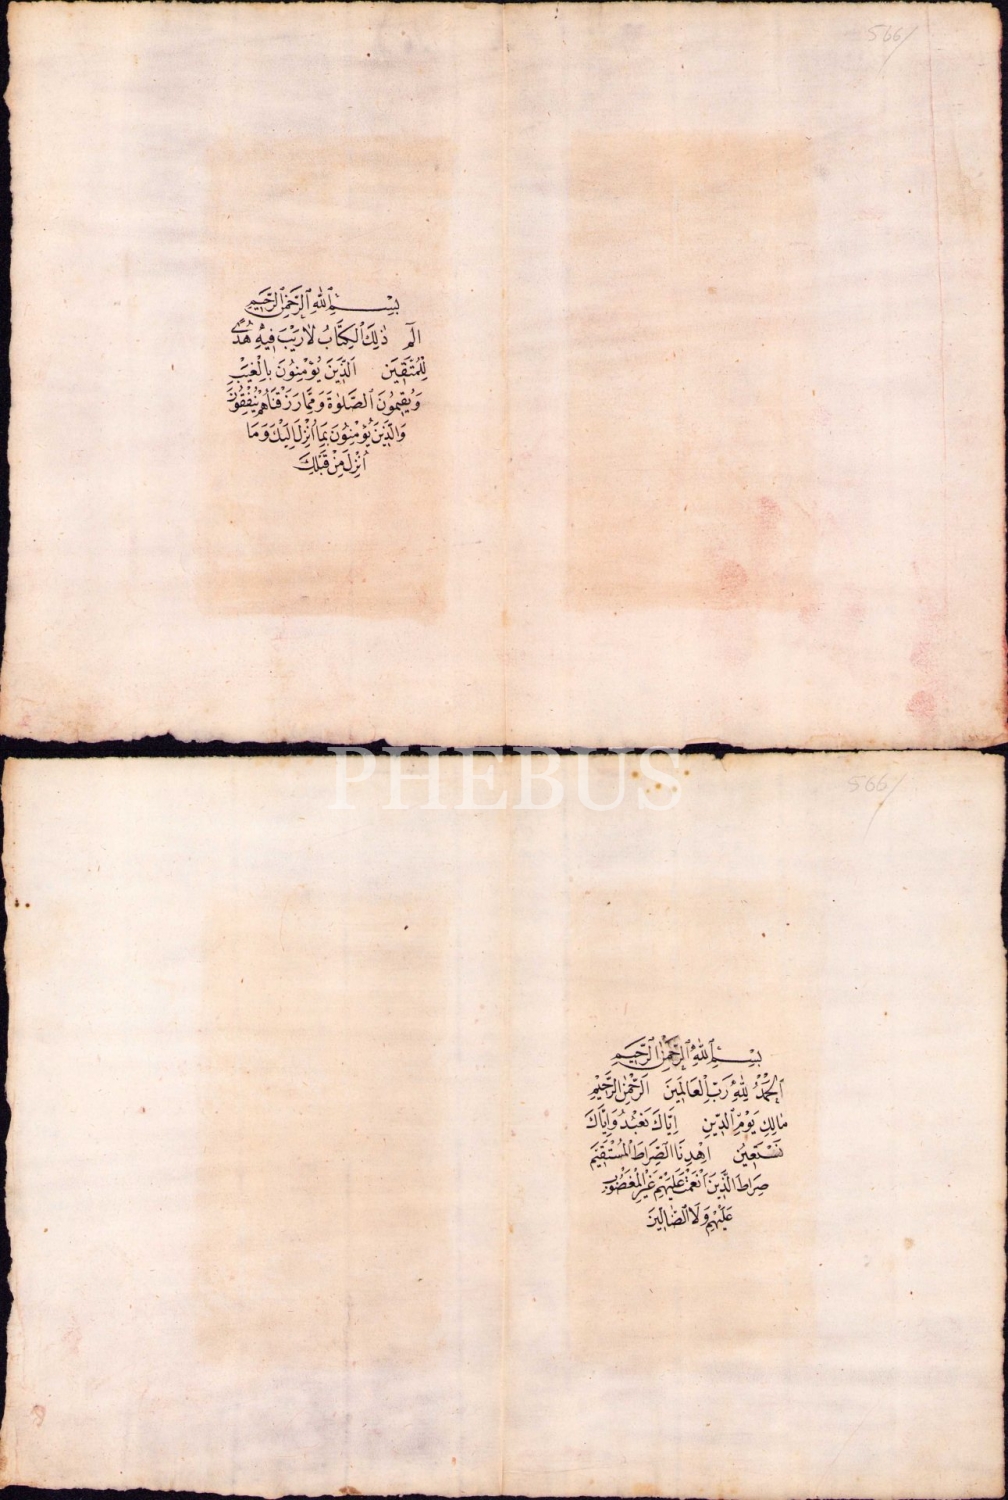 566/
بِسْمِ ٱللهِ ٱلرَّحْمٰنِ ٱلرَّحِيمِ
الٓمٓ ذٰلِكَ ٱلْكِتَابُ لَا رَيْبَ فِيهِ هُدًى
لِلْمُتَّقِينَ اَلَّذِينَ يُؤْمِنُونَ بِالْغَيْبِ
وَيُقِيمُونَ ٱلصَّلٰوةَ وَمِمَّا رَزَقْنَاهُمْ يُنْفِقُونَ
وَالَّذِينَ يُؤْمِنُونَ بِمَا اُنْزِلَ اِلَيْكَ وَمَا
اُنْزِلَ مِنْ قَبْلِكَ
PHEBUS
566/
بِسْمِ ٱللهِ ٱلرَّحْمٰنِ ٱلرَّحِيمِ
اَلْحَمْدُ لِلّٰهِ رَبِّ ٱلْعَالَمِينَ اَلرَّحْمٰنِ ٱلرَّحِيمِ
مَالِكِ يَوْمِ ٱلدِّينِ اِيَّاكَ نَعْبُدُ وَاِيَّاكَ
نَسْتَعِينُ اِهْدِنَا ٱلصِّرَاطَ ٱلْمُسْتَقِيمَ
صِرَاطَ ٱلَّذِينَ اَنْعَمْتَ عَلَيْهِمْ غَيْرِ ٱلْمَغْضُوبِ
عَلَيْهِمْ وَلَا ٱلضَّالِّينَ